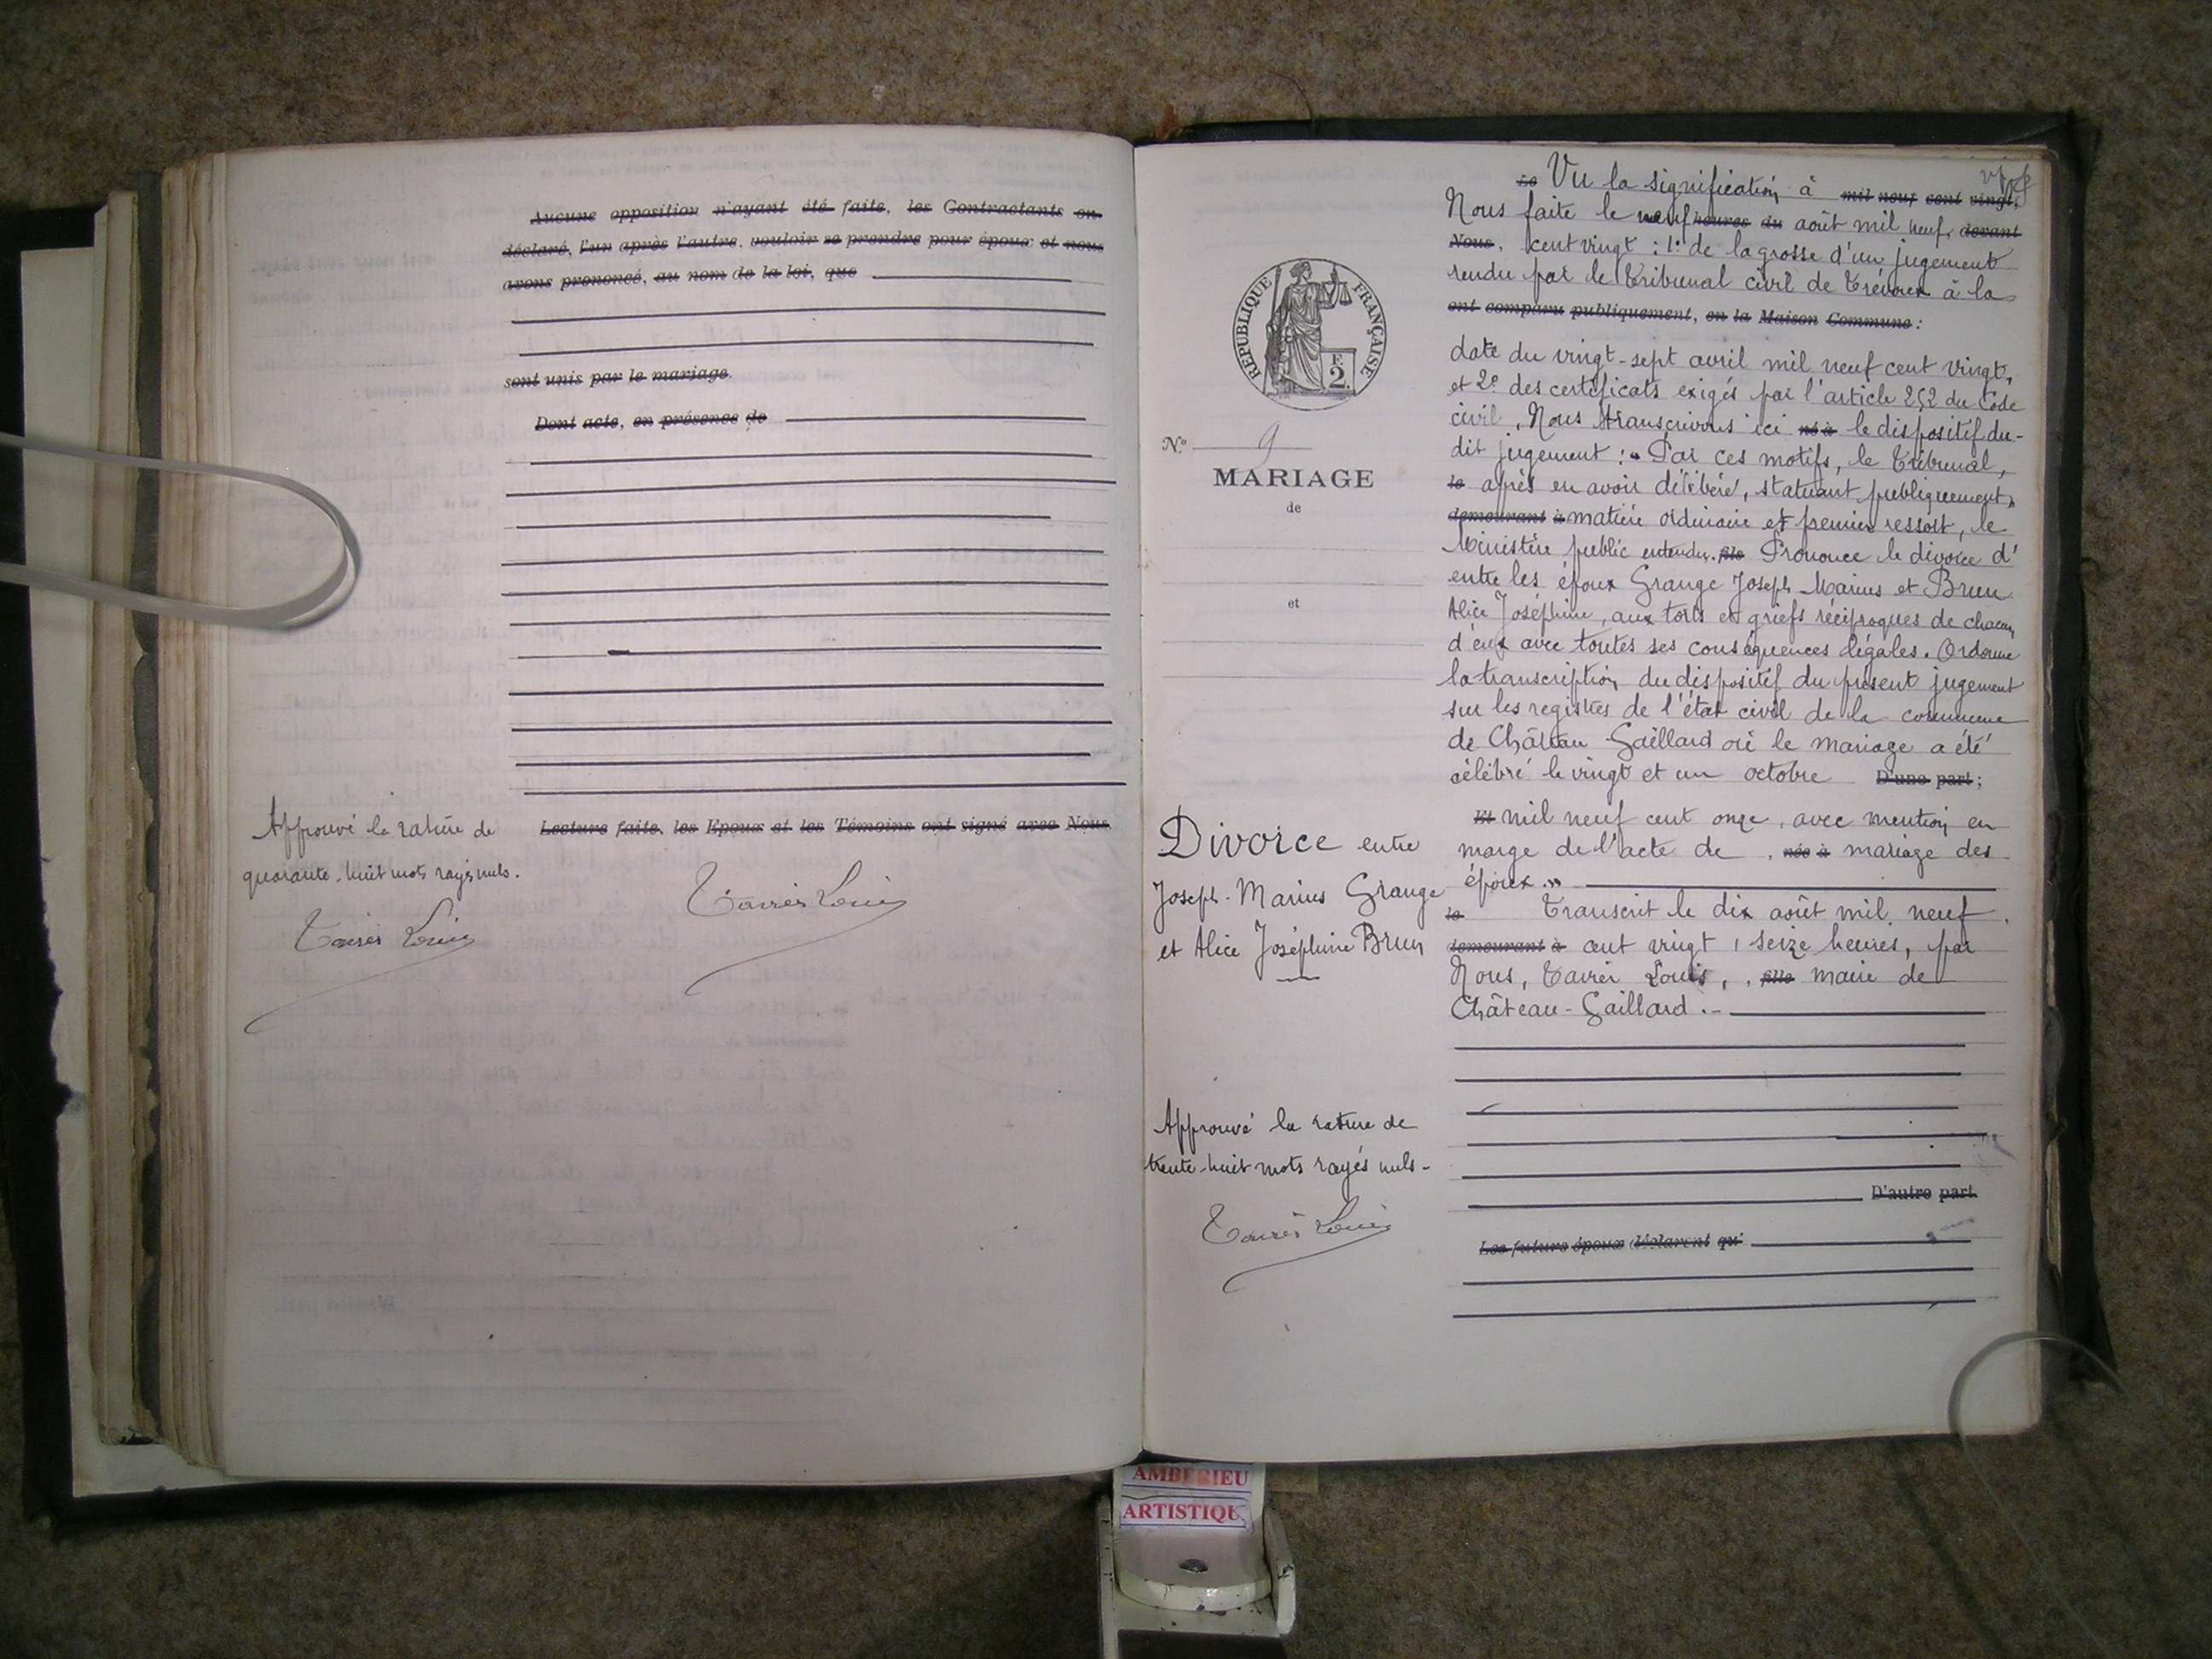 Aucune opposition n'ayant été faite, les Contractants on
déclaré, l'un après l'autre, vouloir se prendre pour époux et nous
avons prononcé, au nom de la loi, que
sont unis par le mariage.
Dont acte, en présence de
Lecture faite, les Epoux et les Témoins ont signé avec Nous.
Approuvé la rature de
quarante-huit mots rayés nuls.
Le Vu la signification à mil neuf cent vingt,
Nous faite le neuf heures du août mil neuf devant
Nous, cent vingt : 1° de la grosse d'un jugement
rendu par le Tribunal civil de Trévoux à la
ont comparu publiquement, en la Maison Commune :
date du vingt-sept avril mil neuf cent vingt,
et 2° des certificats exigés par l'article 252 du Code
civil, Nous transcrivons ici né à le dispositif du-
dit jugement : " Par ces motifs, le Tribunal,
le après en avoir délibéré, statuant publiquement,
demeurant à matière ordinaire et premier ressort, le
Ministère public entendu. fils Prononce le divorce d'
entre les époux Grange Joseph Marius et Brun
Alice Joséphine, aux torts et griefs réciproques de chacun
d'eux avec toutes ses conséquences légales. Ordonne
la transcription du dispositif du présent jugement
sur les registres de l'état civil de la commune
de Château-Gaillard où le mariage a été
célébré le vingt et un octobre D'une part;
Et mil neuf cent onze, avec mention en
marge de l'acte de , née à mariage des
époux."
le Transcrit le dix août mil neuf
demeurant à cent vingt, seize heures, par
Nous, Louis, , fille maire de
Château-Gaillard.-
D'autre part.
Les futurs époux déclarent qu'
RÉPUBLIQUE FRANÇAISE
F.
2.
N° 9
MARIAGE
de
et
Divorce entre
Joseph-Marius Grange
et Alice Joséphine Brun
Approuvé la rature de
trente-huit mots rayés nuls-
AMBERIEU
ARTISTIQU